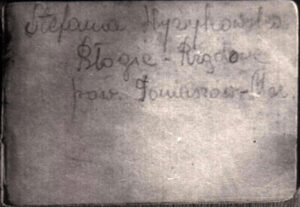 Stefania Wyżykowska
Błogie - Rządowe
pow. Tomaszów - Maz.